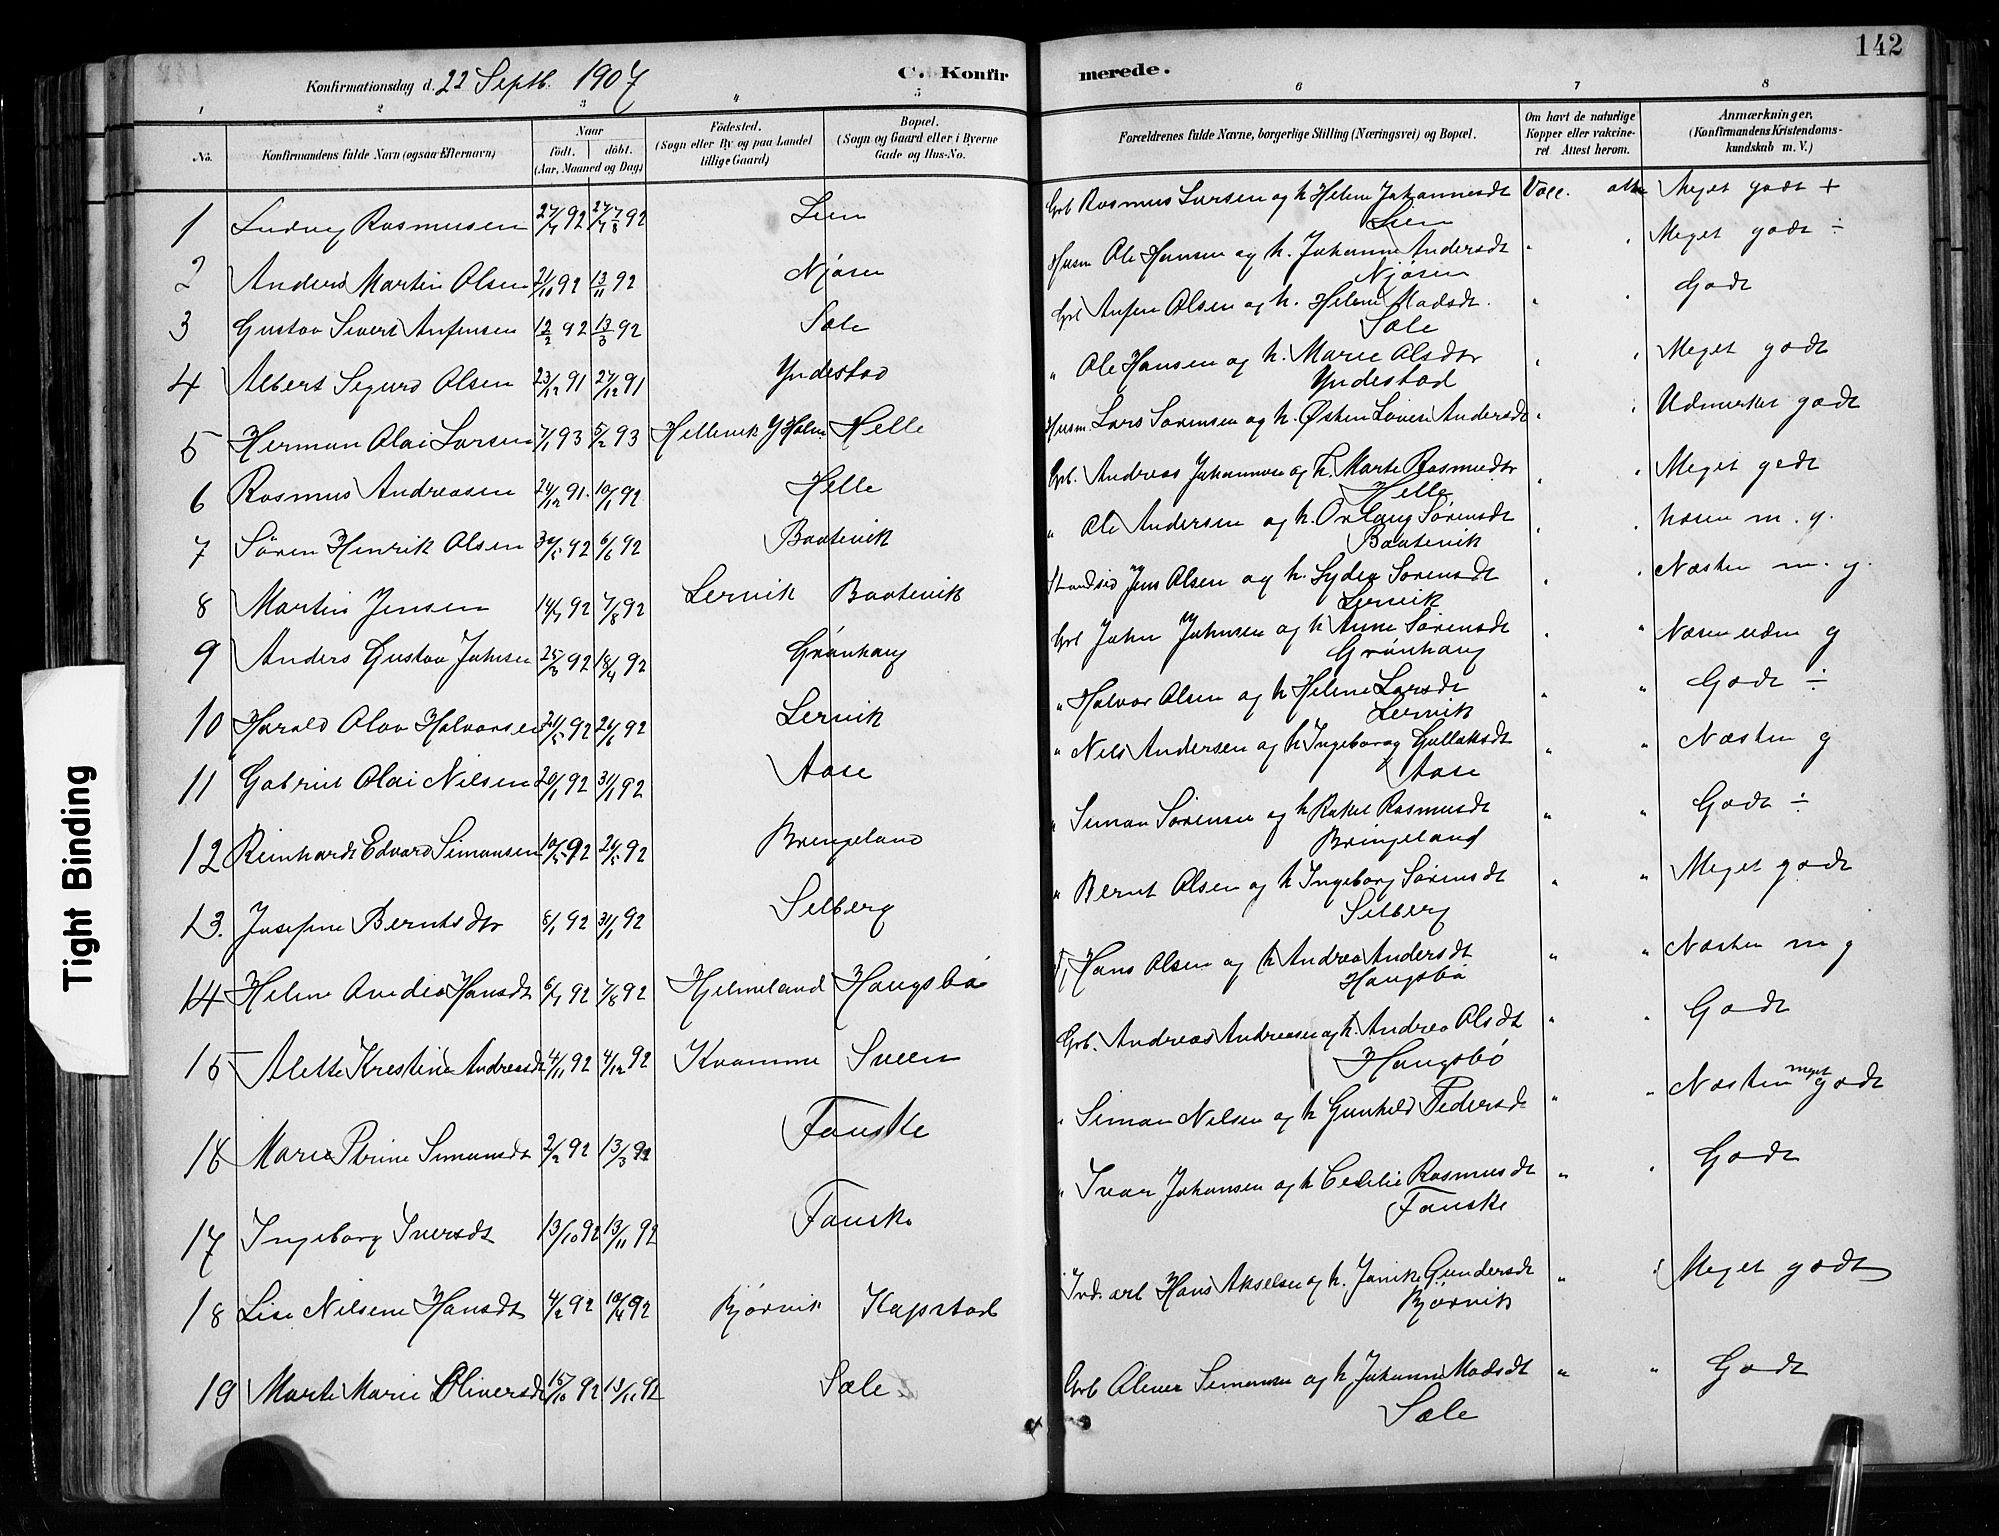 142
Konfirmationsdag d. 22 Septb. 1907
C. Konfirmerede.
1 2 3 4 5 6 7 8
No.
Konfirmandens fulde Navn (ogsaa Efternavn)
Naar
födt. döbt.
(Aar, Maaned og Dag)
Födested.
(Sogn eller By og paa Landet
tillige Gaard)
Bopæl.
(Sogn og Gaard eller i Byerne
Gade og Hus-No.
Forældrenes fulde Navne, borgerlige Stilling (Næringsvei) og Bopæl.
Om havt de naturlige
Kopper eller vakcine-
ret. Attest herom.
Anmærkninger.
(Konfirmandens Kristendoms-
kundskab m. V.)
1 Ludvig Rasmusen 27/7 92 Lien Grb Rasmus Larsen og h Helene Johannesdt Lien Vacc. Meget godt +
2 Anders Martin Olsen 21/10 92 13/11 92 Njøsen Husm Ole Hansen og h. Johanne Andersdt Njøsen " " Meget godt ÷
3 Gustav Sivert Anfinsen 12/2 92 13/3 92 Sæle Grb Anfin Olsen og h. Helene Madsdt. Sæle " " Godt
4 Albert Sigurd Olsen 23/12 91 27/12 91 Yndestad " Ole Hansen og h. Marie Olsdtr Yndestad " " Meget godt
5 Herman Olai Larsen 7/1 93 5/2 93 Hellevik Y Holm Helle Husm Lars Sørensen og h. Andersdt " " Udmerket godt
6 Rasmus Andreasen 24/12 91 10/1 92 Helle Grb. Andreas Johannesen og h. Marte Rasmusdtr Helle " " Meget godt
7 Søren Henrik Olsen 6/6 92 Baatevik " Ole Andersen og h. Sørensdt Baatevik " " m. g.
8 Martin Jensen 14/7 92 7/8 92 Lervik Baatevik Strandsid Jens Olsen og h. Sørensdt Lervik " " Næsten m. g.
9 Anders Gustav Johnsen 25/3 92 18/4 92 Grønhaug Grb John Johnsen og h Anne Sørensdt Grønhaug " " g
10 Harald Olav Halvorsen 92 92 Lervik " Halvor Olsen og h Helene Larsdt Lervik " " Godt ÷
11 Gabriel Olai Nilsen 20/1 92 31/1 92 Aase " Nils Andersen og h Ingeborg Gullaksdt Aase " " Næsten g
12 Reinhardt Edvard Simonsen 10/5 92 92 Bringeland " Simon Sørensen og h Rakel Rasmusdt Bringeland " " Godt ÷
13. Josefine Berntsdtr 8/1 92 31/1 92 Selberg " Bernt Olsen og h Ingeborg Sørensdt Selberg " " Meget godt
14 Helene Andrea Hansdt 6/7 92 7/8 92 Hjelmeland Haugsbø Hans Olsen og h Andrea Andersdt Haugsbø " " Næsten m g
15 Alette Kristine Andreasdt 4/11 92 4/12 92 Kvamme Sveen Grb. Andreas Andreasen og h. Andrea Olsdt Haugsbø " " Godt
16 Marie Petrine Simonsdt 2/2 92 13/3 92 Fauske " Simon Nilsen og h Gunhild Pedersdt " " Næsten meget godt
17 Ingeborg Iversdt 13/10 92 13/11 92 Fauske " Ivar Johansen og h Cecilie Rasmusdt Fauske " " Godt
18 Lise Nilsine Hansdt 4/2 92 10/4 92 Bjørvik Kapstad Ind. arb Hans Akselsen og h. Janike Gundersdt Bjørvik " " Meget godt
19 Marte Marie Oliversdt 16/10 92 13/11 92 Sæle Grb Oliver Simonsen og h Johanne Madsdt Sæle " " Godt
Tight Binding